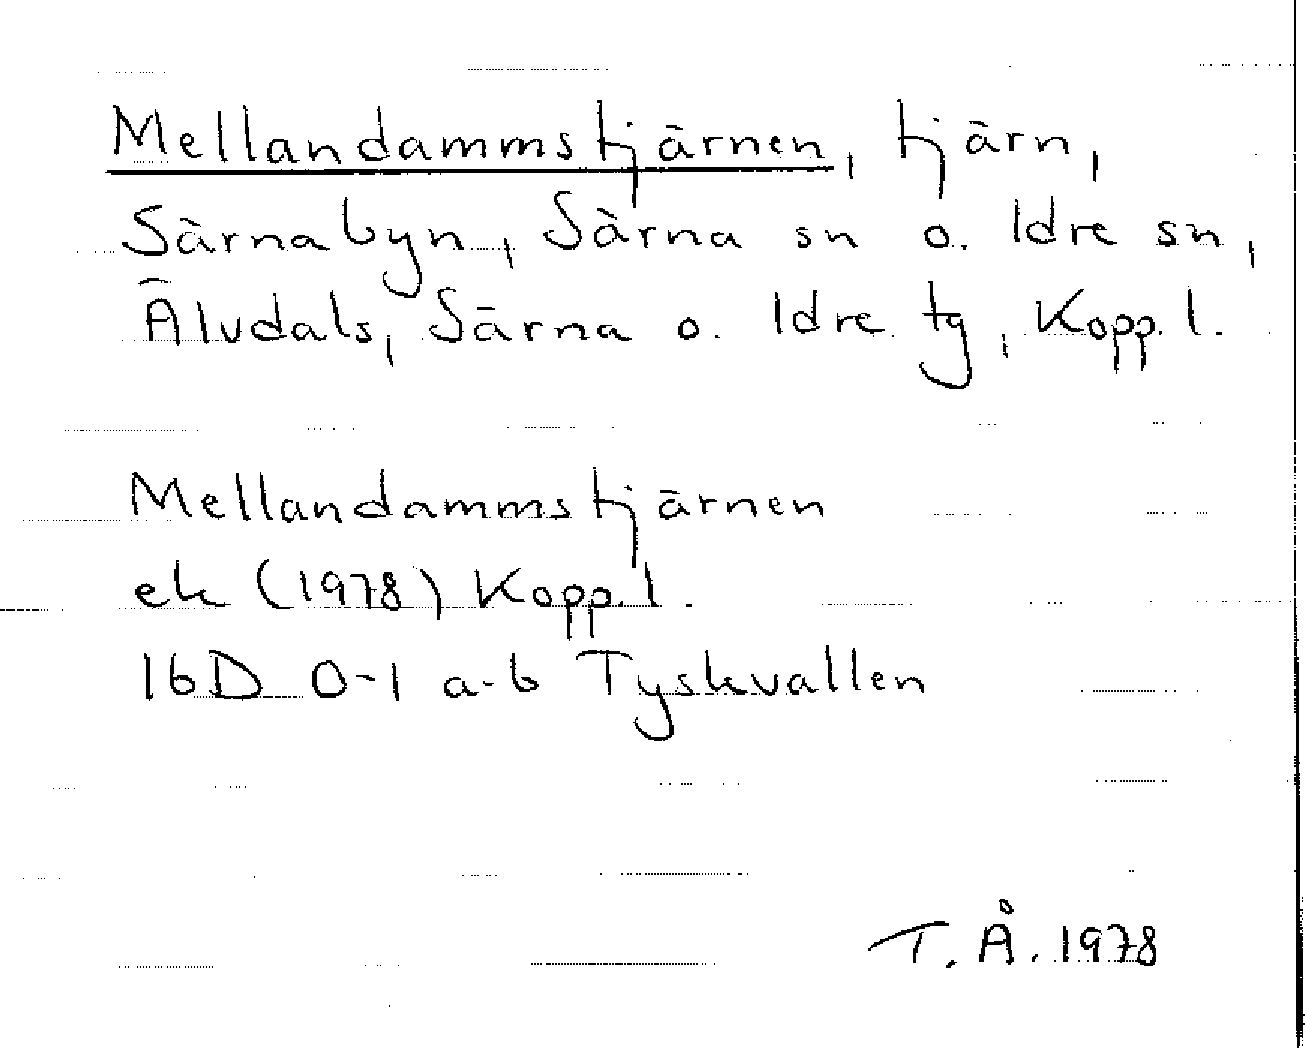 Mellandammstjärnen, tjärn,
Särnabyn, Särna sn o. Idre sn,
Älvdals, Särna o. Idre tg, Kopp. l.
Mellandammstjärnen
ek (1978) Kopp. l.
16D 0-1 a-b Tyskvallen
T. Å. 1978